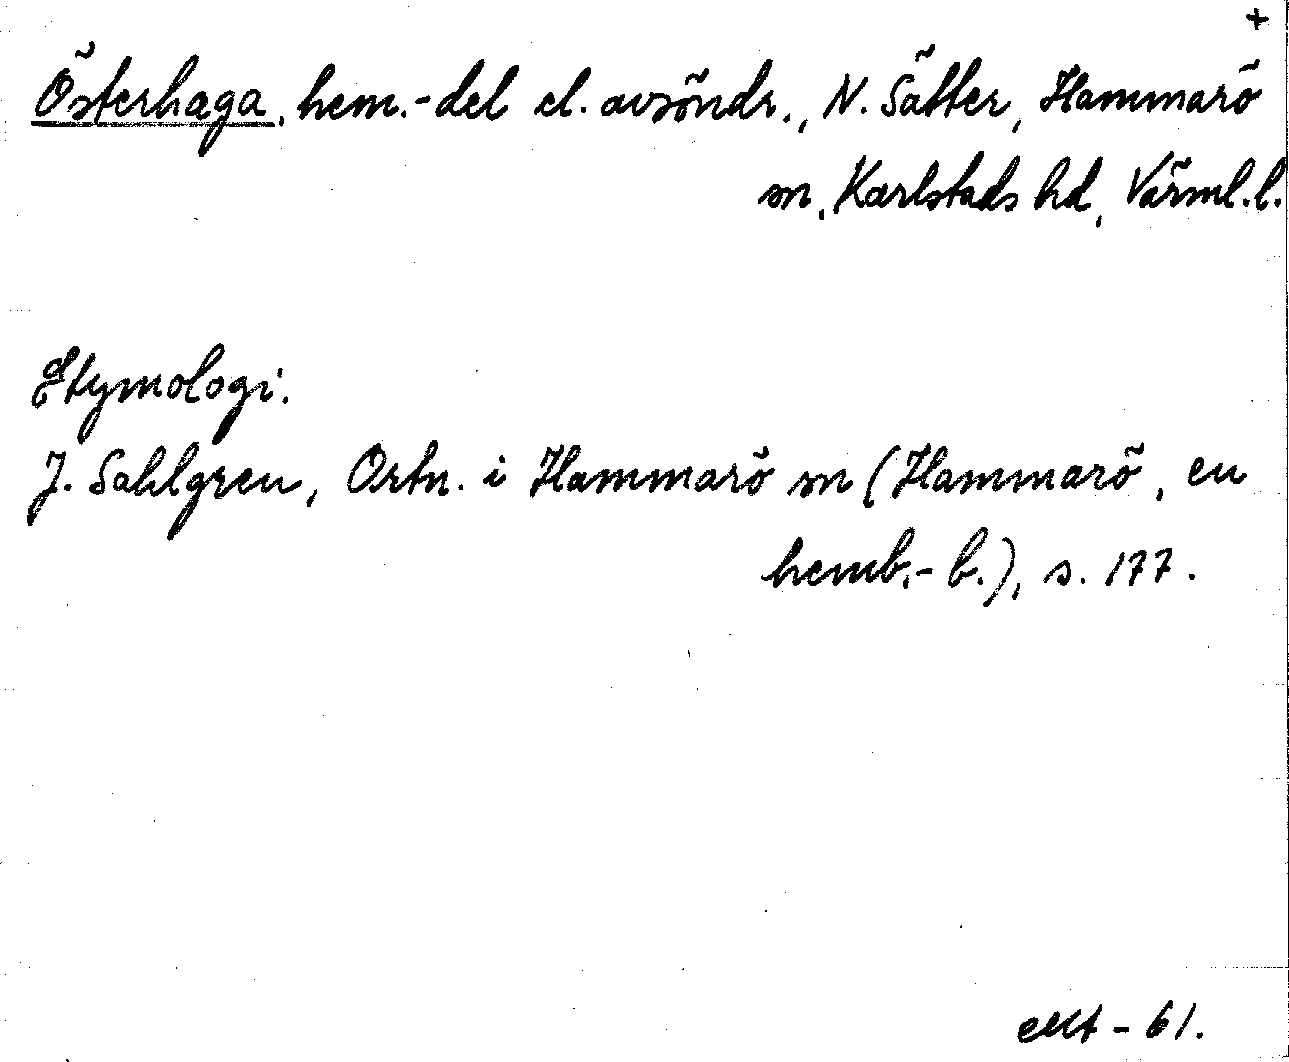 +
Österhaga, hem.-del el. avsöndr., N. Sätter, Hammarö
sn, Karlstads hd, Värml. l.
Etymologi.
J. Sahlgren, Ortn. i Hammarö sn (Hammarö, en
hemb.- b.), s. 177.
- 61.